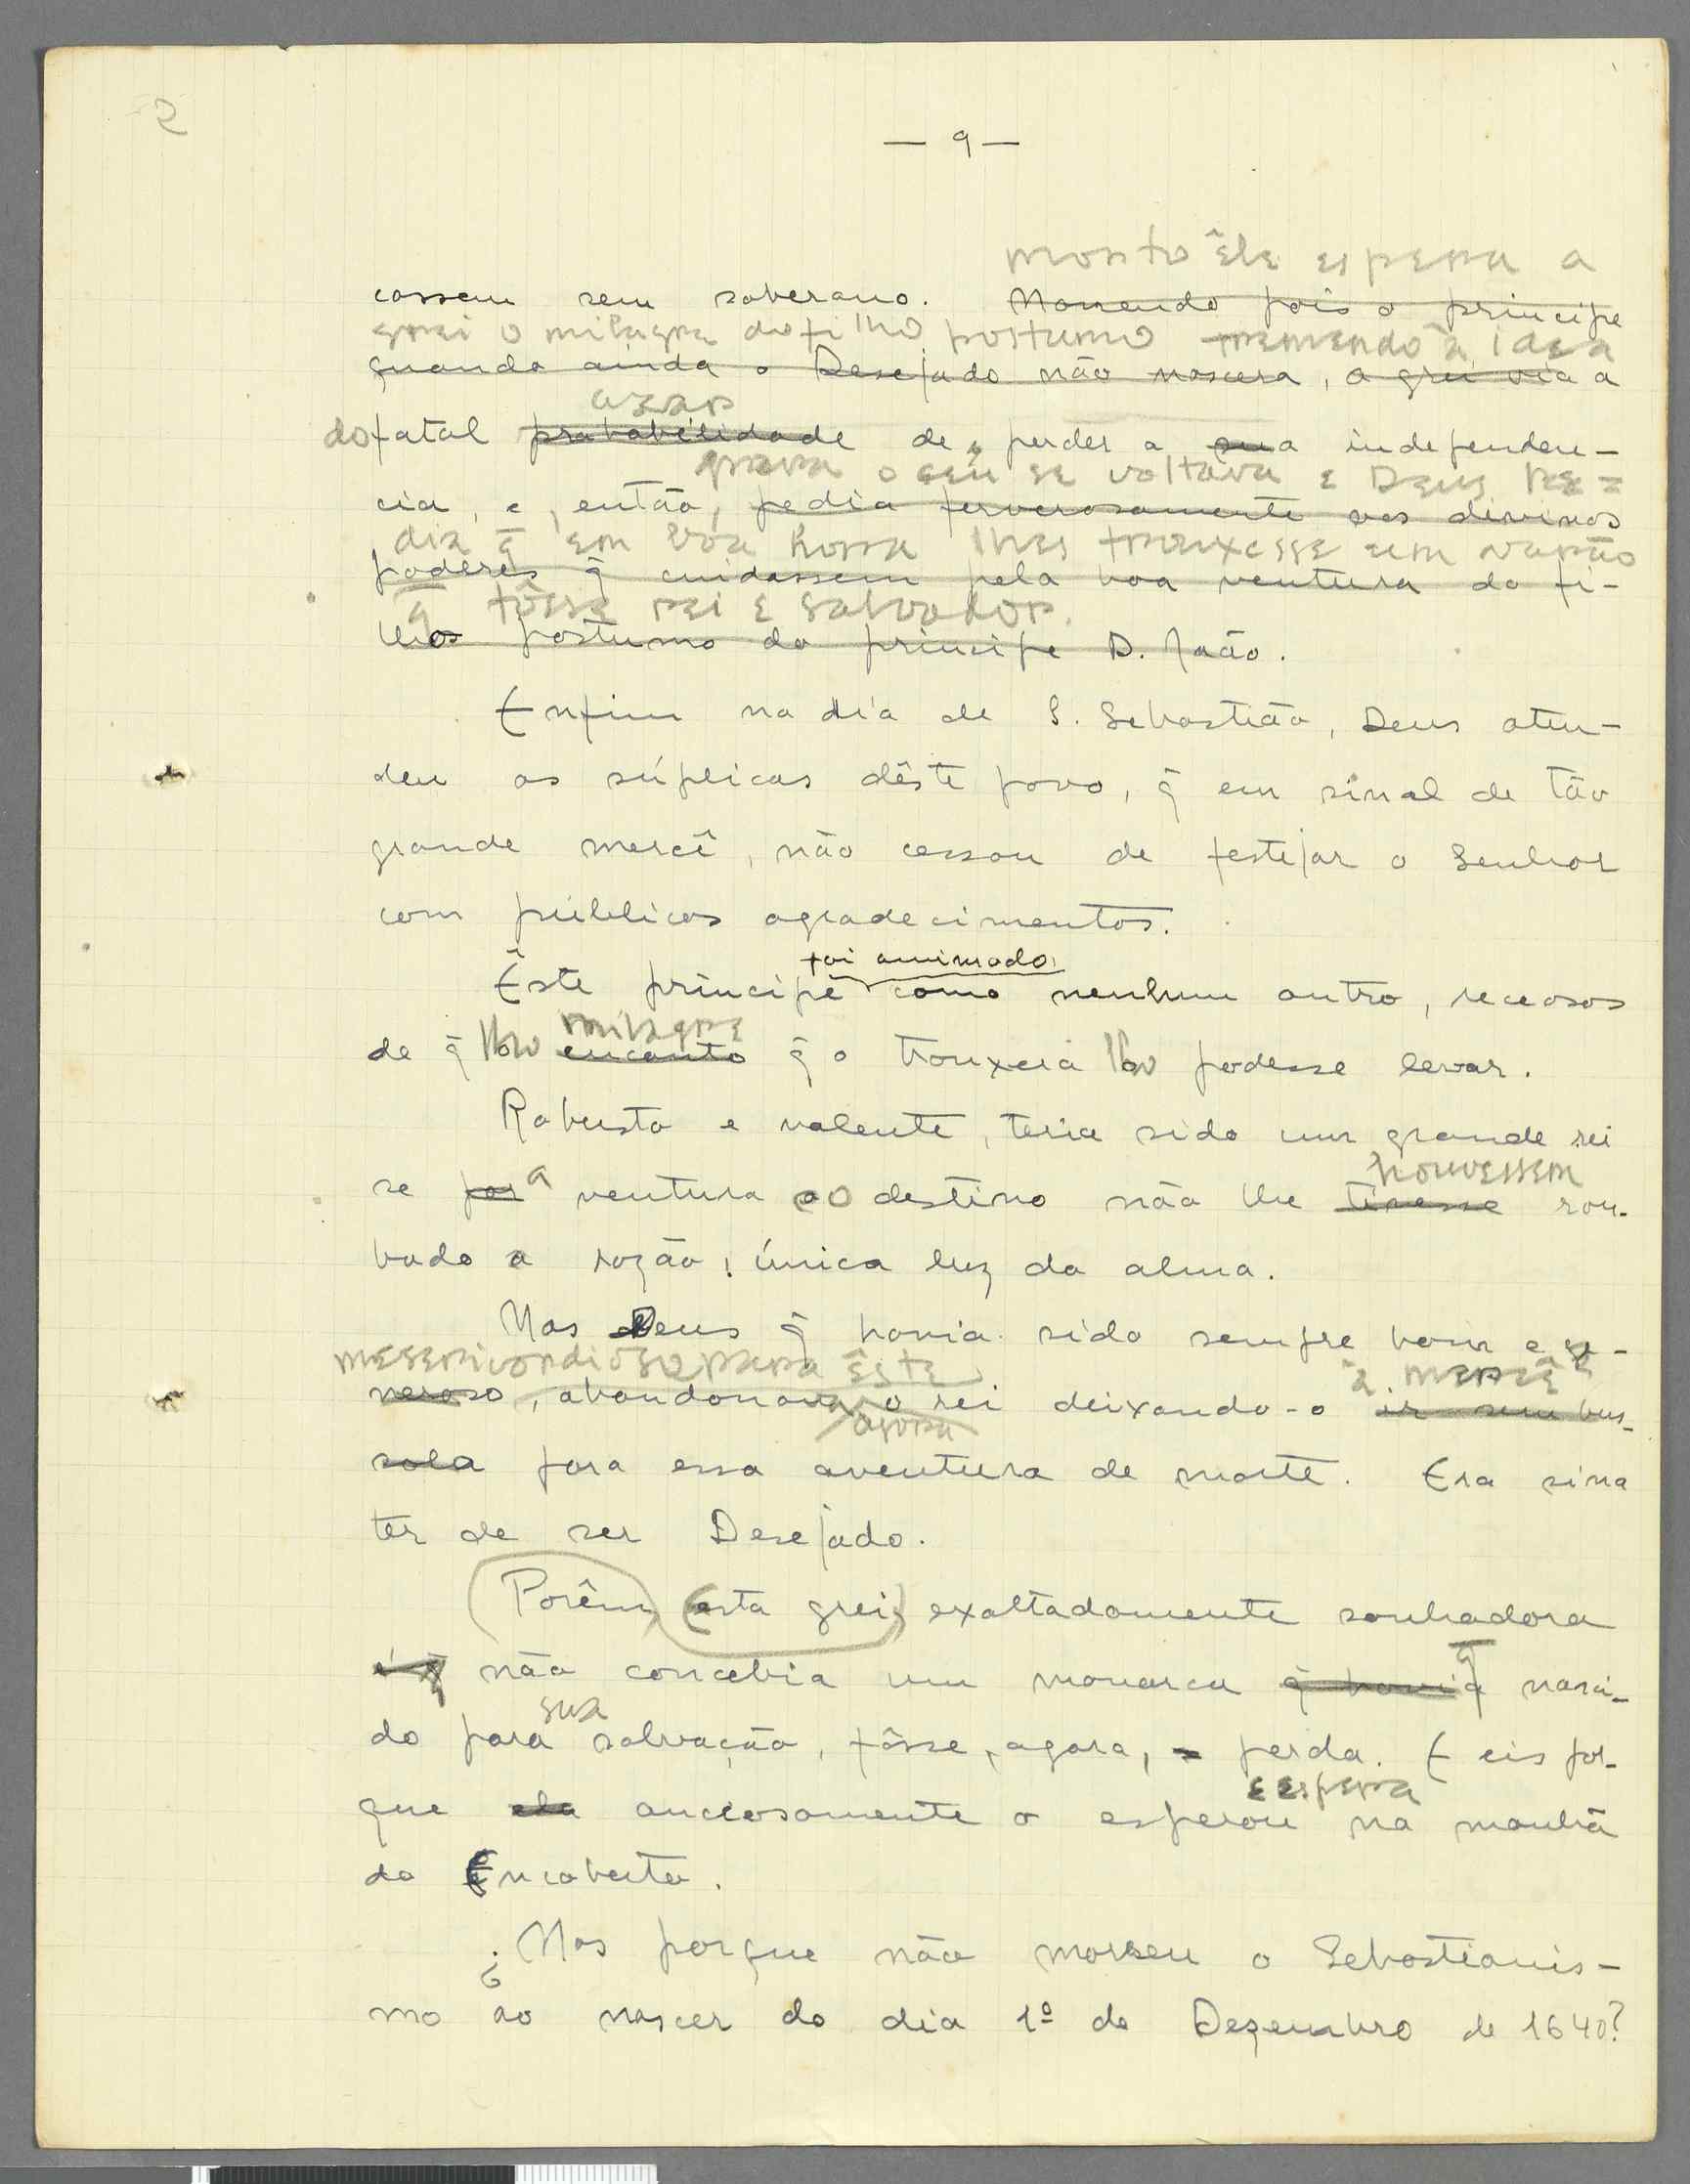 2
— 9 —
morto êle espera a
cassem sem soberano. Morrendo pois o principe
grei o milagre do filho postumo tremendo à idea
quando ainda o Desejado não nascera, a grei via a
azar
do fatal probabilidade de perder a sua independen-
para o céu se voltava e Deus pe=
cia, e, então, pedia fervorosamente aos divinos
dia q̃ em bôa hora lhes trouxesse um varão
poderes q̃ cuidassem pela boa ventura do fi-
q̃ fôsse rei e salvador.
lho postumo do principe D. João.
Enfim no dia de S. Sebastião, Deus aten-
deu as súplicas dêste povo, q̃ em sinal de tão
grande mercê, não cessou de festejar o Senhor
com públicos agradecimentos.
foi amimado
Êste príncipe como nenhum outro, receosos
milagre
de q̃ lho encanto q̃ o trouxera lho podesse levar.
Robusto e valente, teria sido um grande rei
houvessem
se por a ventura o destino não lhe tivesse rou-
bado a razão, única luz da alma.
Mas Deus q̃ havia sido sempre bom e ge-
mesericordioso para êste à mercê
neroso, abandonava o rei deixando-o ir sem bus-
agora
sola para essa aventura de morte. Era sina
ter de ser Desejado.
Porêm esta grei, exaltadamente sonhadora
é q̃ não concebia um monarca q̃ havia q̃ nasci-
sua
do para salvação, fôsse, agora, perda. E eis por-
e espera
que ela anciosamente o esperou na manhã
do Encoberto.
¿Mas porque não morreu o Sebastianis-
mo ao nascer do dia 1º de Dezembro de 1640?